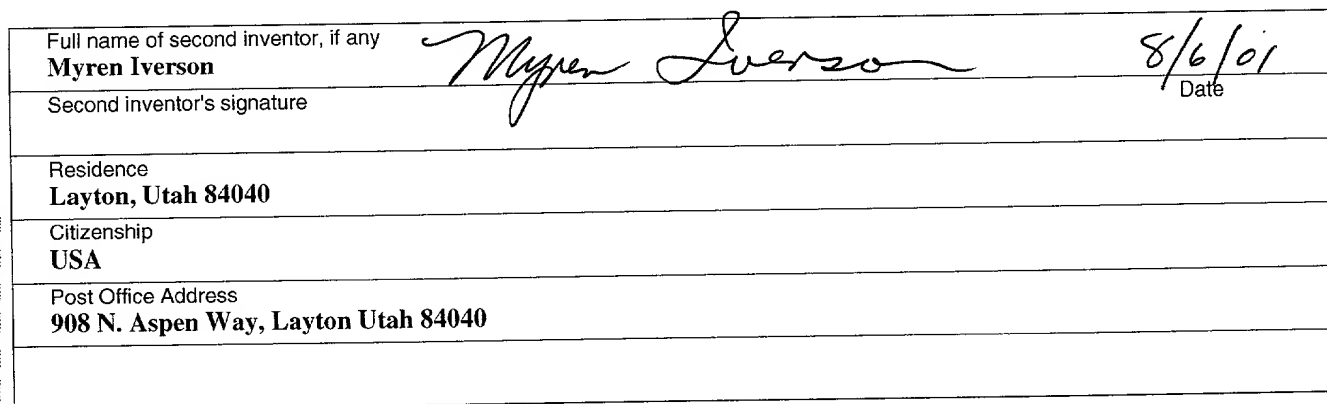 Full name of second inventor, if any
Myren Iverson
Myren Iverson 8/6/01
Second inventor's signature
Date
Residence
Layton, Utah 84040
Citizenship
USA
Post Office Address
908 N. Aspen Way, Layton Utah 84040